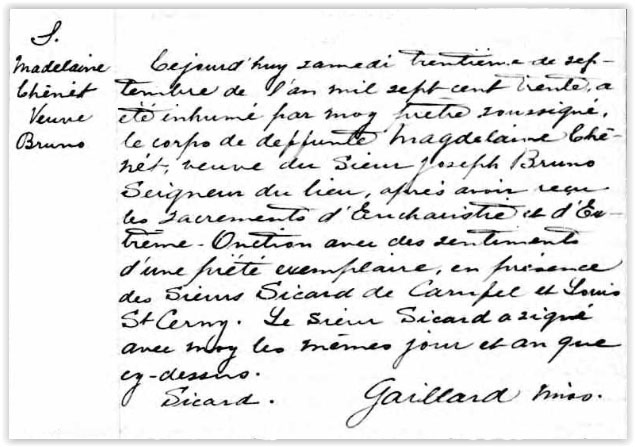 S.
Madelaine
Chênet
Veuve
Bruno
Cejourd'huy samedi trentième de sep-
tembre de l'an mil sept cent trente, a
été inhumé par moy prêtre soussigné,
le corps de deffunte Magdelaine Chê-
nêt, veuve du Sieur Joseph Bruno
Seigneur du lieu, après avoir reçu
les sacrements d'Eucharistie et d'Ex-
trême-Onction avec des sentiments
d'une piété exemplaire, en présence
des Sieurs Sicard de Carufel et Louis
St Cerny. Le sieur Sicard a signé
avec moy les mêmes jour et an que
cy-dessus.
Sicard. Gaillard miss.